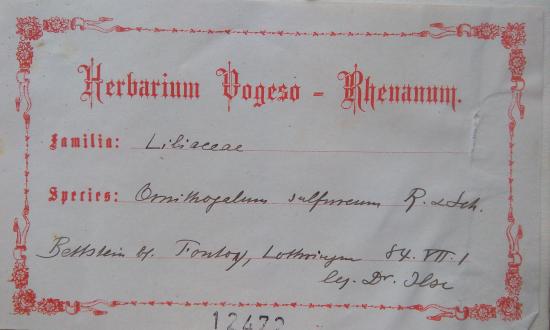 Herbarium Vogeso - Rhenanum.
Familia: Liliaceae
Species: Ornithogalum sulfureum R. & Sch.
Bettstein b/. Fontoy, Lothringen 84. VII. 1
leg. Dr. Ilse
12472